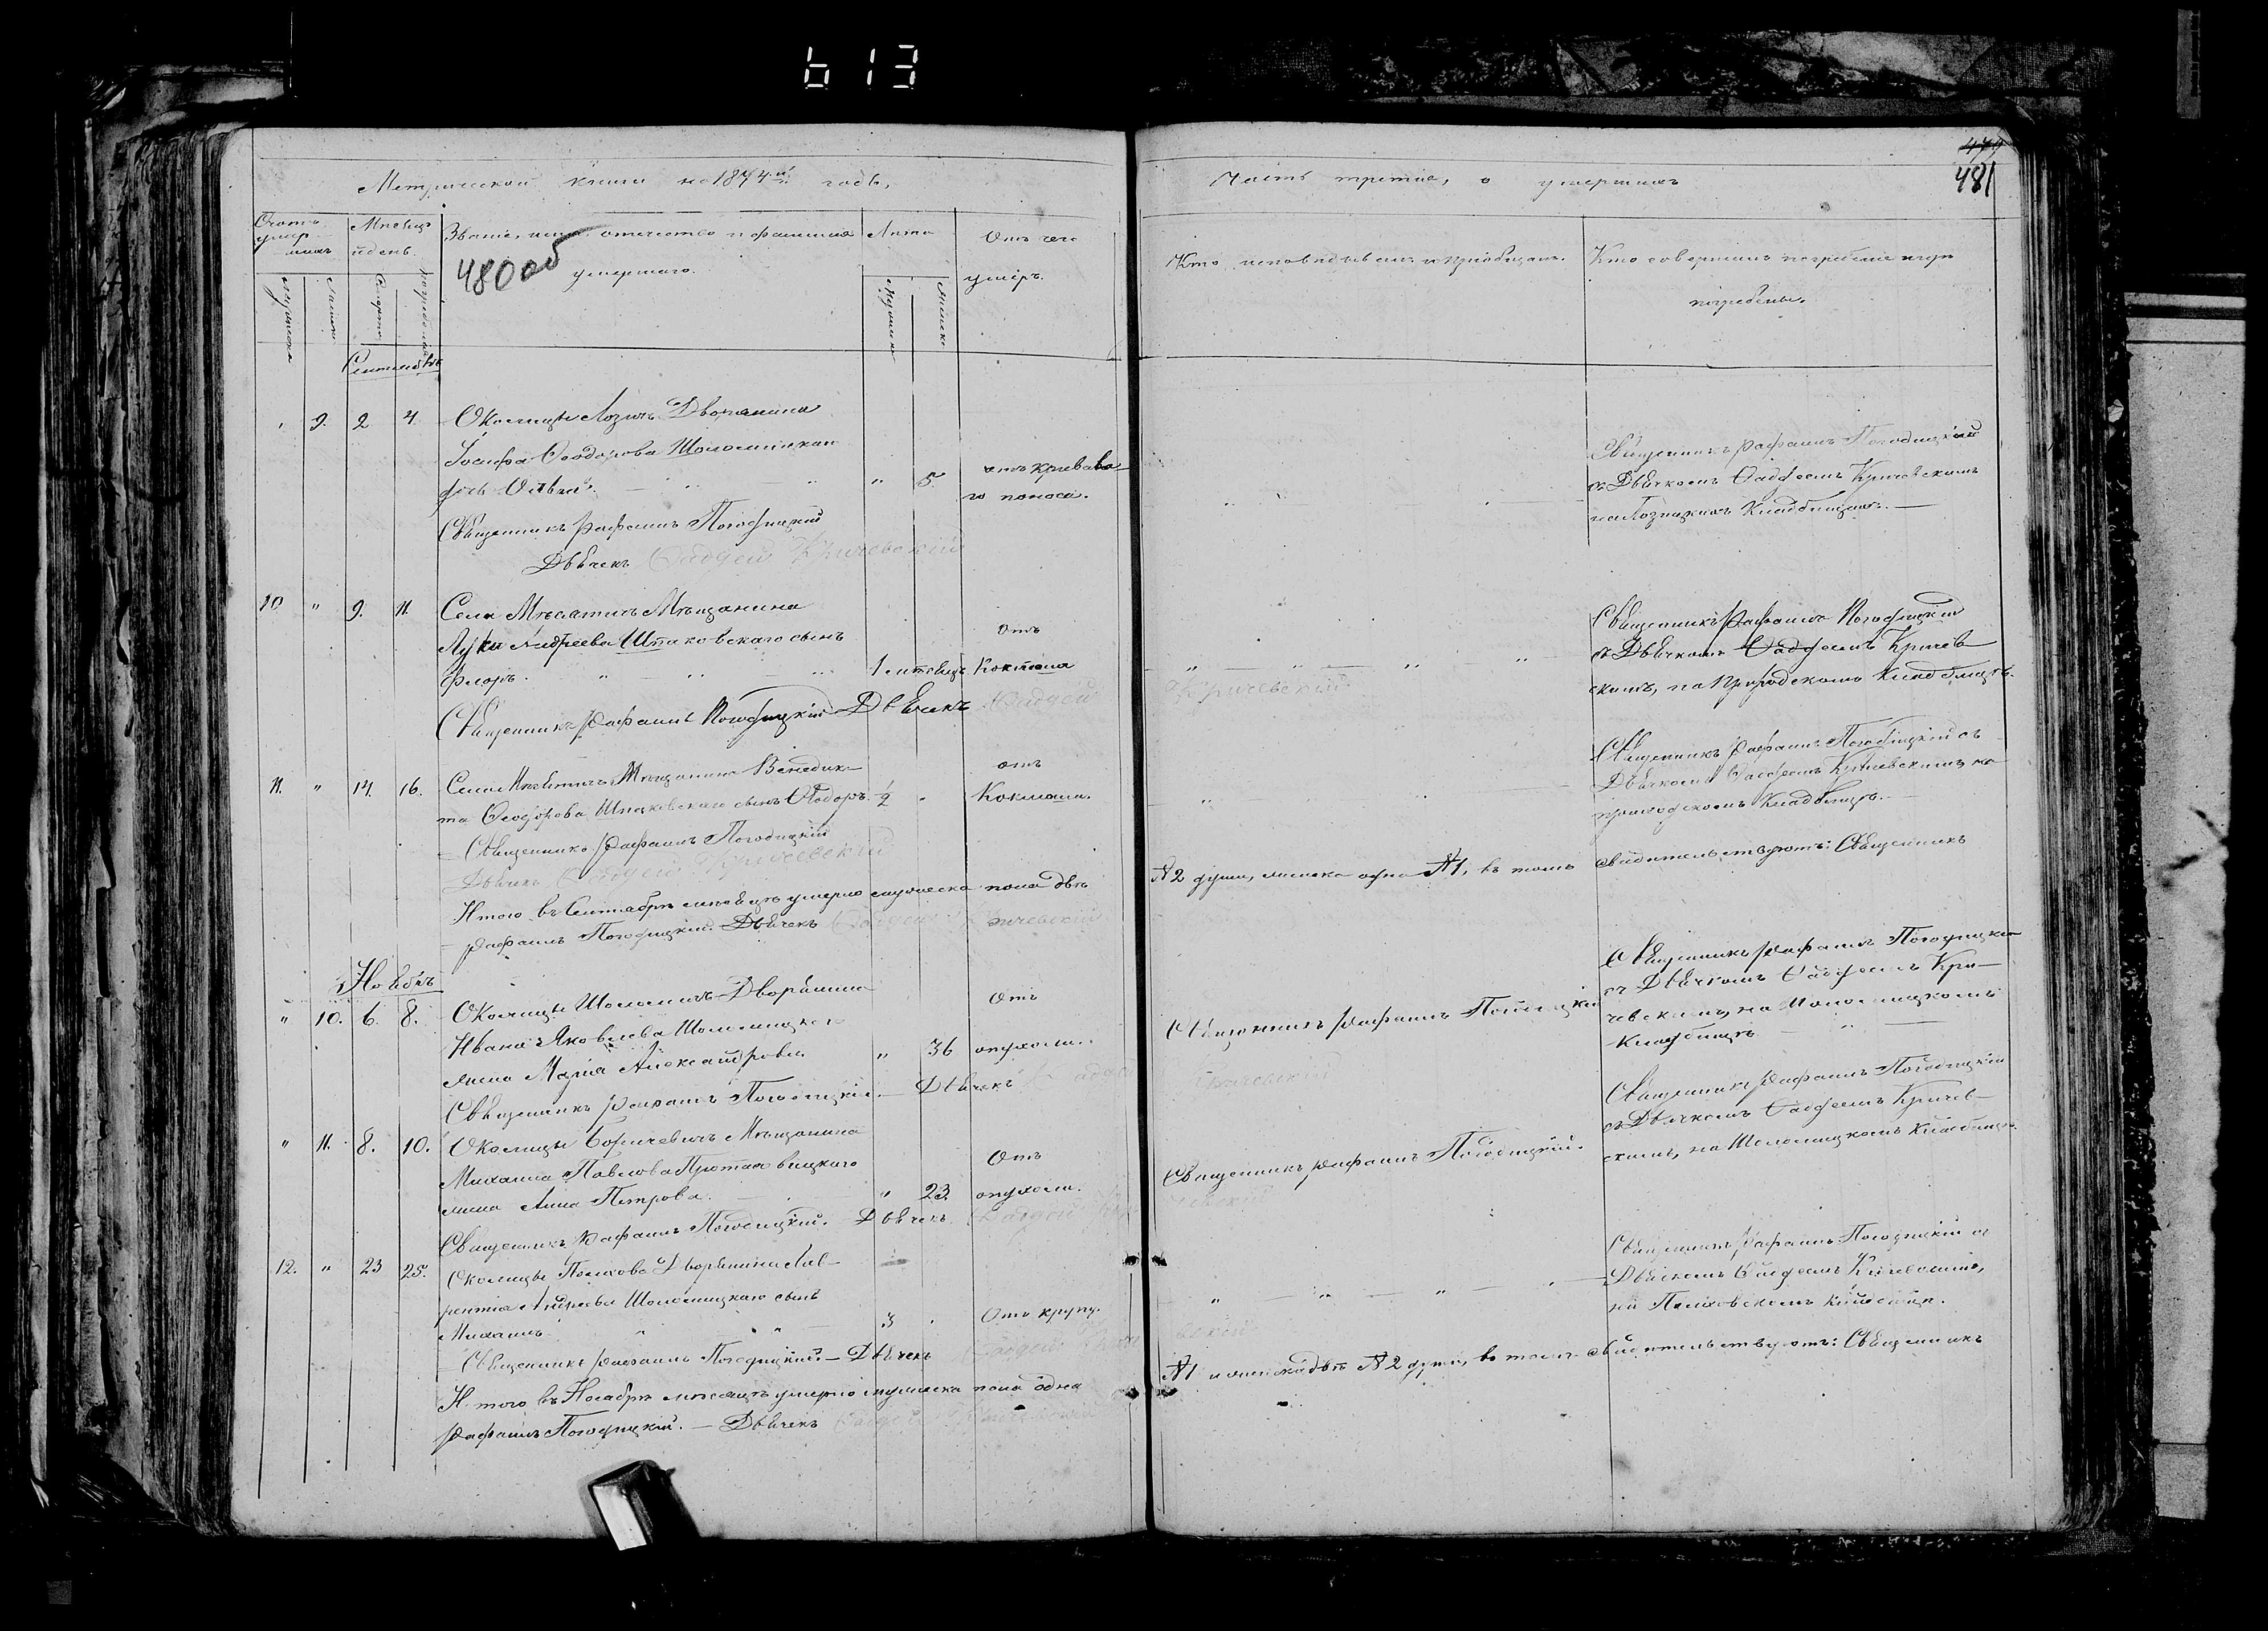 613
Метрической книги на 1874й годъ,
480 об
Счотъ умершихъ
Мѣсяцъ и день.
Званіе, имя, отечество и фамилія умершаго.
Лѣта
Отъ чего умеръ.
Мужеска
Женска
Смерти
Погребенія
Мужеска
Женска
Сентябрь
" 9. 2 4. Околицы Лозичъ Дворянина
Іосифа Ѳеодорова Шоломицкаго
дочь " 5. отъ кроваваго поноса.
Священникъ Рафаилъ Погодицкій
Дьячекъ Ѳаддей Кричевскій
10 " 9. 11. Села Мѣсятичъ Мѣщанина
Луки Андреева Шпаковскаго сынъ
Флоръ. 1 мѣсяцъ Отъ Коклюша
Священникъ Рафаилъ Погодицкій Дьячекъ Ѳаддей Кричевскій
11. " 14. 16. Села Мѣсятичъ Мѣщанина Венедикта Ѳеодорова Шпаковскаго сынъ Ѳеодоръ. 1/2 " отъ Коклюша.
Священникъ Рафаилъ Погодицкій
Дьячекъ Ѳаддей Кричевскій
Итого въ Сентябрѣ мѣсяцѣ умерло мужеска пола двѣ №2 души, женска одна №1, въ томъ свидѣтельствуютъ: Священникъ
Рафаилъ Погодицкій. Дьячекъ Ѳаддей Кричевскій
Ноябрь
" 10. 6. 8. Околицы Шоломичъ Дворянина
Ивана Яковлева Шоломицкаго
жена Марія Александрова " 36 Отъ опухоли.
Священникъ Рафаилъ Погодицкій. — Дьячекъ Ѳаддей Кричевскій
" 11. 8. 10. Околицы Боричевичъ Мѣщанина
Михаила Павлова Протасовицкаго
жена Анна Петрова. " 23. Отъ опухоли.
Священникъ Рафаилъ Погодицкій. Дьячекъ Ѳаддей Кричевскій
12. " 23 25. Околицы Полхова Дворянина Лаврентія Андреева Шоломицкаго сынъ
Михаилъ 3 " Отъ крупу.
Священникъ Рафаилъ Погодицкій. — Дьячекъ Ѳаддей Кричевскій
Итого въ Ноябрѣ мѣсяцѣ умерло мужеска пола одна №1 и женска двѣ №2 души, въ томъ свидѣтельствуютъ: Священникъ
Рафаилъ Погодицкій. — Дьячекъ Ѳаддей Кричевскій
Часть третія, о умершихъ
479
481
Кто исповѣдывалъ и пріобщалъ.
Кто совершилъ погребеніе и гдѣ
погребены.
Священникъ Рафаилъ Погодицкій
съ Дьячкомъ Ѳаддеемъ Кричевскимъ
на Лозицкомъ Кладбищѣ. —
Священникъ Рафаилъ Погодицкій
съ Дьячкомъ Ѳаддеемъ Кричев-
скимъ, на Кладбищѣ.
Священникъ Рафаилъ Погодицкій съ
Дьячкомъ Ѳаддеемъ Кричевскимъ на
Кладбищѣ. —
Священникъ Рафаилъ Погодицкій
Священникъ Рафаилъ Погодицкій
съ Дьячкомъ Ѳаддеемъ Кри-
чевскимъ, на Шоломицкомъ
Кладбищѣ
Священникъ Рафаилъ Погодицкій.
Священникъ Рафаилъ Погодицкій
съ Дьячкомъ Ѳаддеемъ Кричев-
скимъ, на Шоломицкомъ Кладбищѣ.
Священникъ Рафаилъ Погодицкій съ
Дьячкомъ Ѳаддеемъ Кричевскимъ,
на Полховскомъ кладбищѣ.